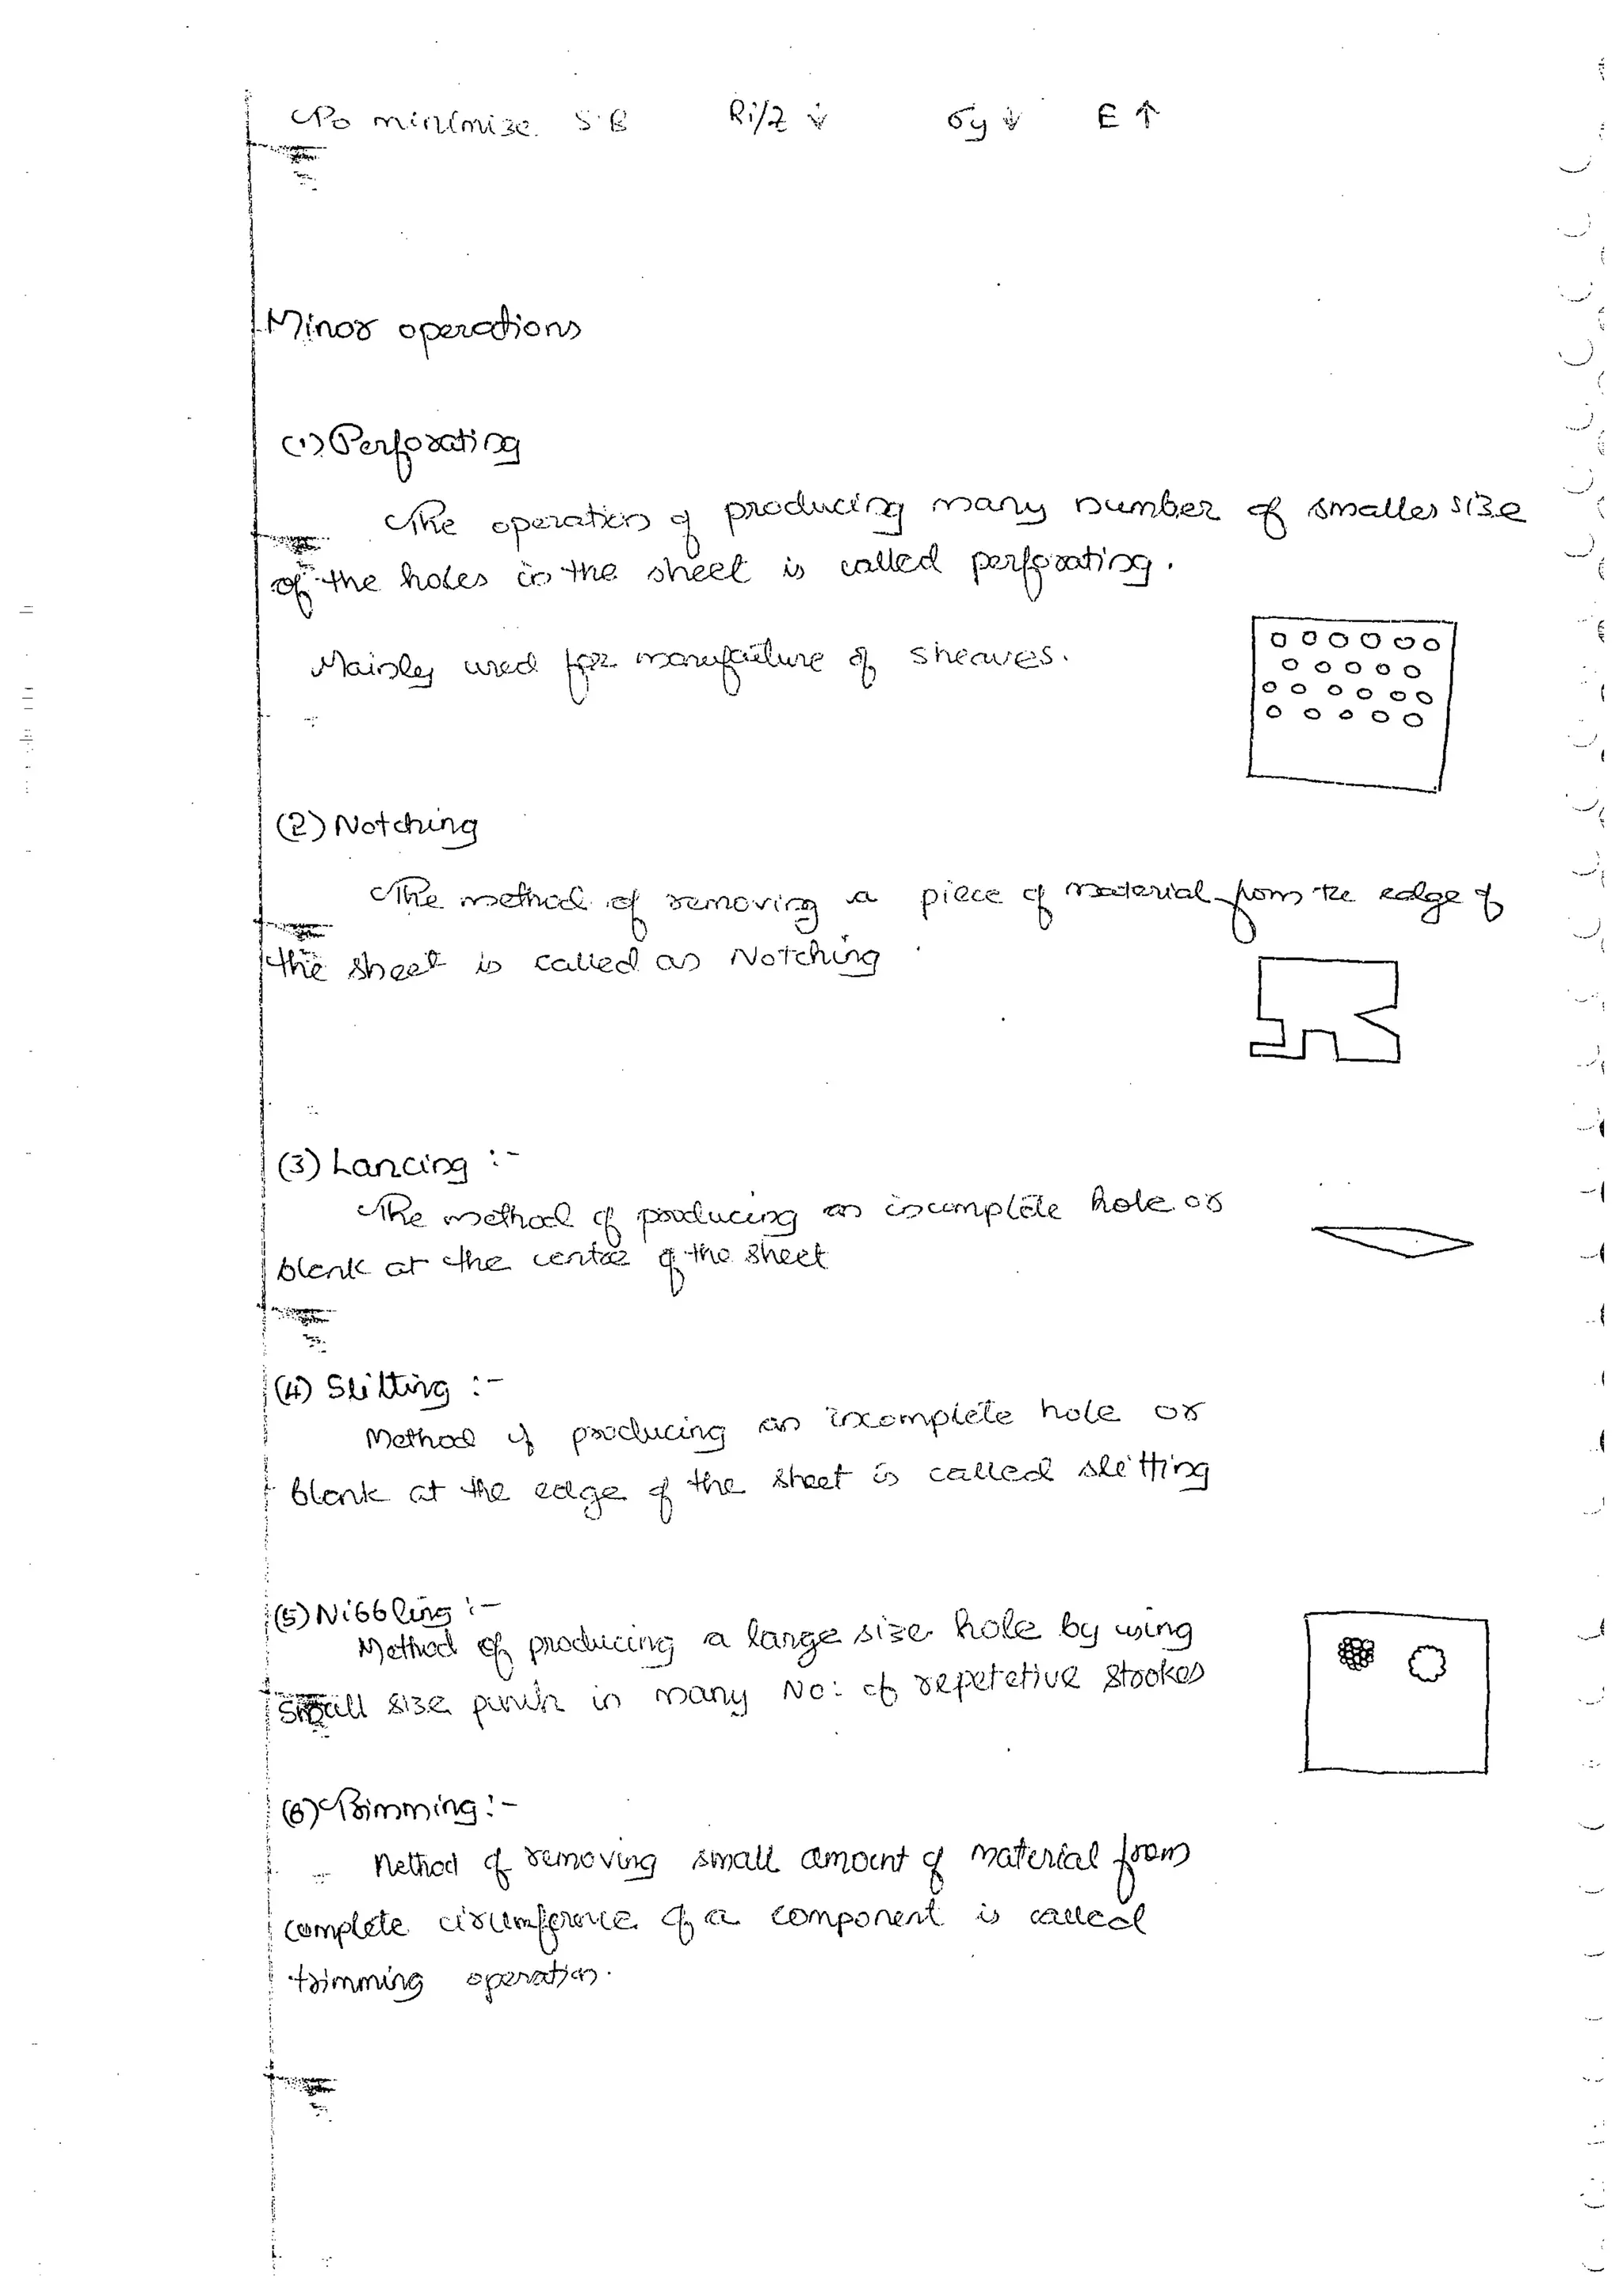 To minimize S.B Ri/Z ↓ σy ↓ E ↑
Minor operations
(1) Perforating
The operation of producing many number of smaller size
of the holes in the sheet is called perforating.
Mainly used for manufacture of sheaves.
(2) Notching
The method of removing a piece of material from the edge of
the sheet is called as Notching
(3) Lancing :-
The method of producing an incomplete hole or
blank at the centre of the sheet
(4) Slitting :-
Method of producing an incomplete hole or
blank at the edge of the sheet is called slitting
(5) Nibbling :-
Method of producing a large size hole by using
small size punch in many No: of repetetive strokes
(6) Trimming :-
Method of removing small amount of material from
complete circumference of a component is called
trimming operation.